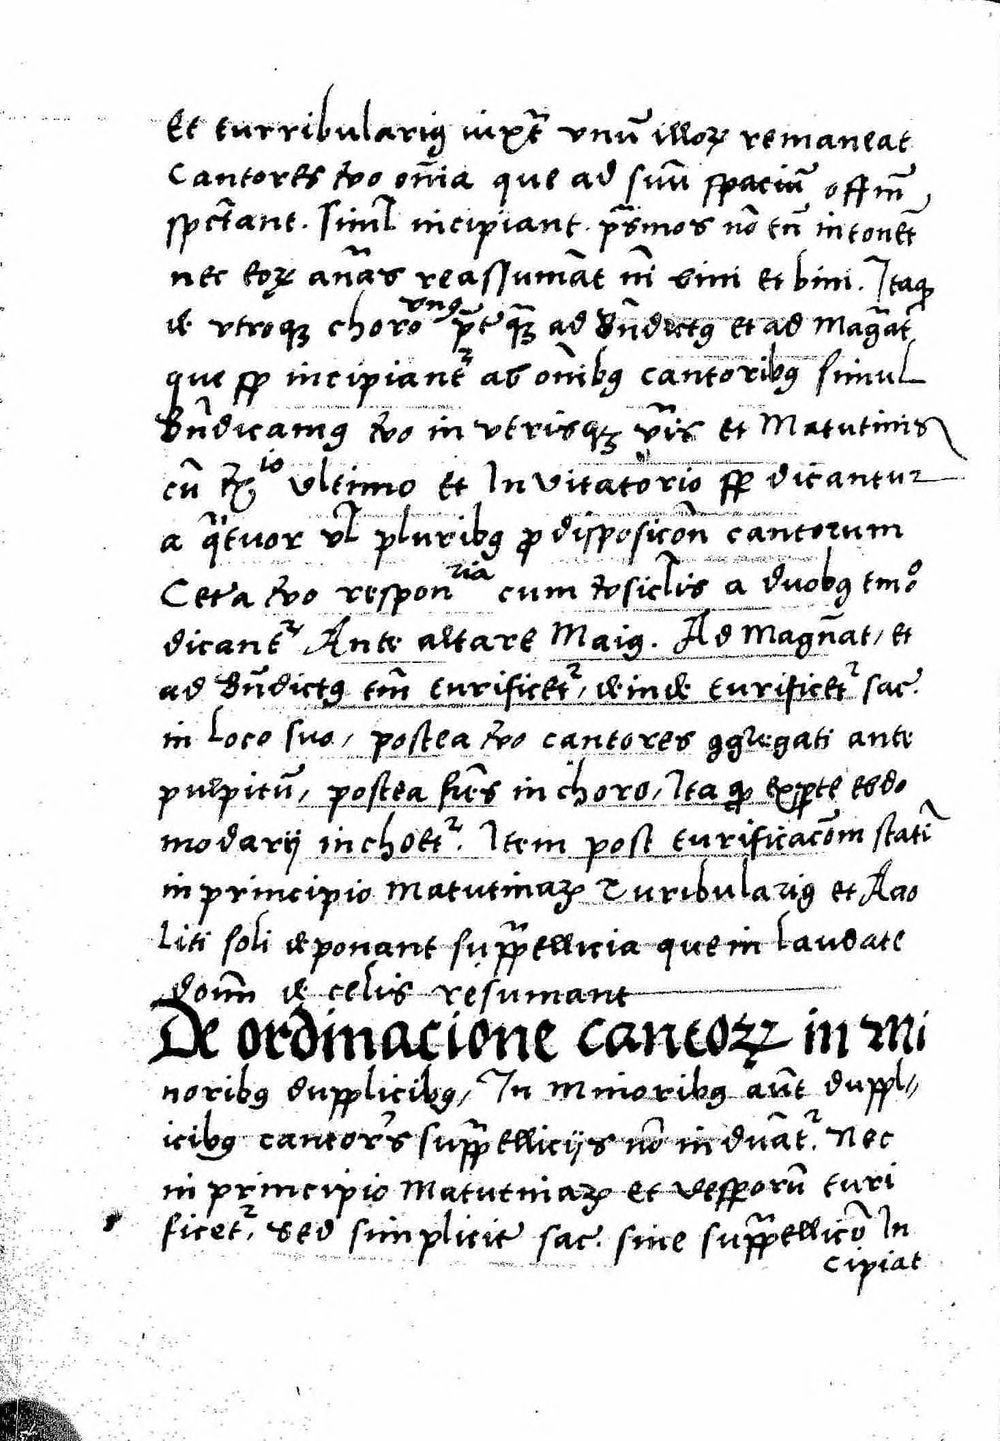 Et turribulariꝰ iuxt̄ vnū illoꝝ remaneat
Cantores v̄o om̄ia que ad suū spaciū offm̄
spectant. Siml̄ incipiant. ps̄mos nō tn̄ intonēt
nec eoꝝ an̄as reassumāt ni bini et bini. Itaqꝫ
de vtroqꝫ choro vnꝰ ad Bn̄dictꝰ et ad Magn̄at
que sp̄ incipiantᷣ ab om̄ibꝰ cantoribꝰ simul
Bn̄dicamꝰ v̄o in vtrisqꝫ vr̄is et Matutinis
cū ℟io vltimo et Invitatorio sp̄ dicantur
a qͣtuor vl̄ pluribꝰ ꝓ disposicōn cantorum
Cet̄a v̄o responria cum v̄sicl̄is a duobꝰ tm̄o
dicantᷣ Ante altare Maiꝰ. Ad Magn̄at / et
ad Bn̄dictꝰ tm̄ turificetᷣ / deinde turificetᷣ sac.
in loco suo / postea v̄o cantores ꝯgregati ante
pulpitū / postea fr̄es in choro / Ita qꝫ ex pte ebdo
modarij inchoetᷣ. Item post turificacōm statī
in principio matutinaꝝ Turibulariꝰ et Aco
liti soli deponant supp̄ellicia que in laudate
dom̄ de celis resumant
De ordinacione cantoꝝ in Mi
noribꝰ dupplicibꝰ / In Minoribꝰ aūt duppl //
icibꝰ cantor̄s supp̄ellicijs nō induātᷣ. Nec
in principio Matutinaꝝ et vesperorū turi
ficetᷣ. Sed simplicit̄ sac. sine supp̄ellicō In
cipiat